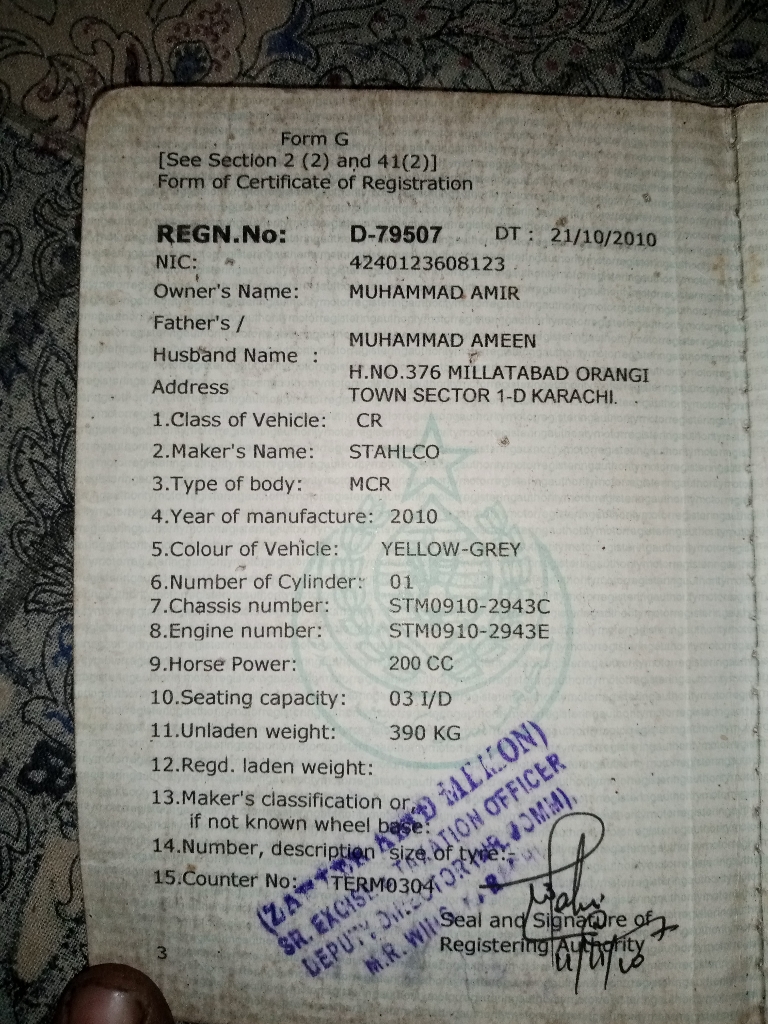 Form G
[See Section 2 (2) and 41(2)]
Form of Certificate of Registration
REGN.No: D-79507 DT : 21/10/2010
NIC: 4240123608123
Owner's Name: MUHAMMAD AMIR
Father's /
Husband Name : MUHAMMAD AMEEN
Address H.NO.376 MILLATABAD ORANGI
TOWN SECTOR 1-D KARACHI.
1.Class of Vehicle: CR
2.Maker's Name: STAHLCO
3.Type of body: MCR
4.Year of manufacture: 2010
5.Colour of Vehicle: YELLOW-GREY
6.Number of Cylinder: 01
7.Chassis number: STM0910-2943C
8.Engine number: STM0910-2943E
9.Horse Power: 200 CC
10.Seating capacity: 03 I/D
11.Unladen weight: 390 KG
12.Regd. laden weight:
13.Maker's classification or
if not known wheel base:
14.Number, description size of tyre:-
15.Counter No: TERM0304
MEMON)
SR. EXCISE TAXATION OFFICER
DEPUTY DIRECTOR
M.R. WING
Seal and Signature of
Registering Authority
3